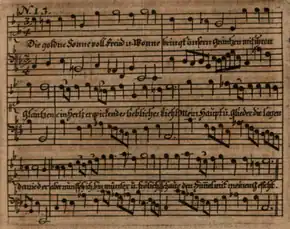 No. 13.
Die goldne Sonne voll Freud u Wonne bringt unsern Gräntzen mit ihrem
Gläntzen ein hertz erquickendes liebliches Licht Mein Haupt u. Glieder die lagen
darnieder aber nun steh ich bin munter u. frölich schaue den Himmel mit meinem Gesicht.